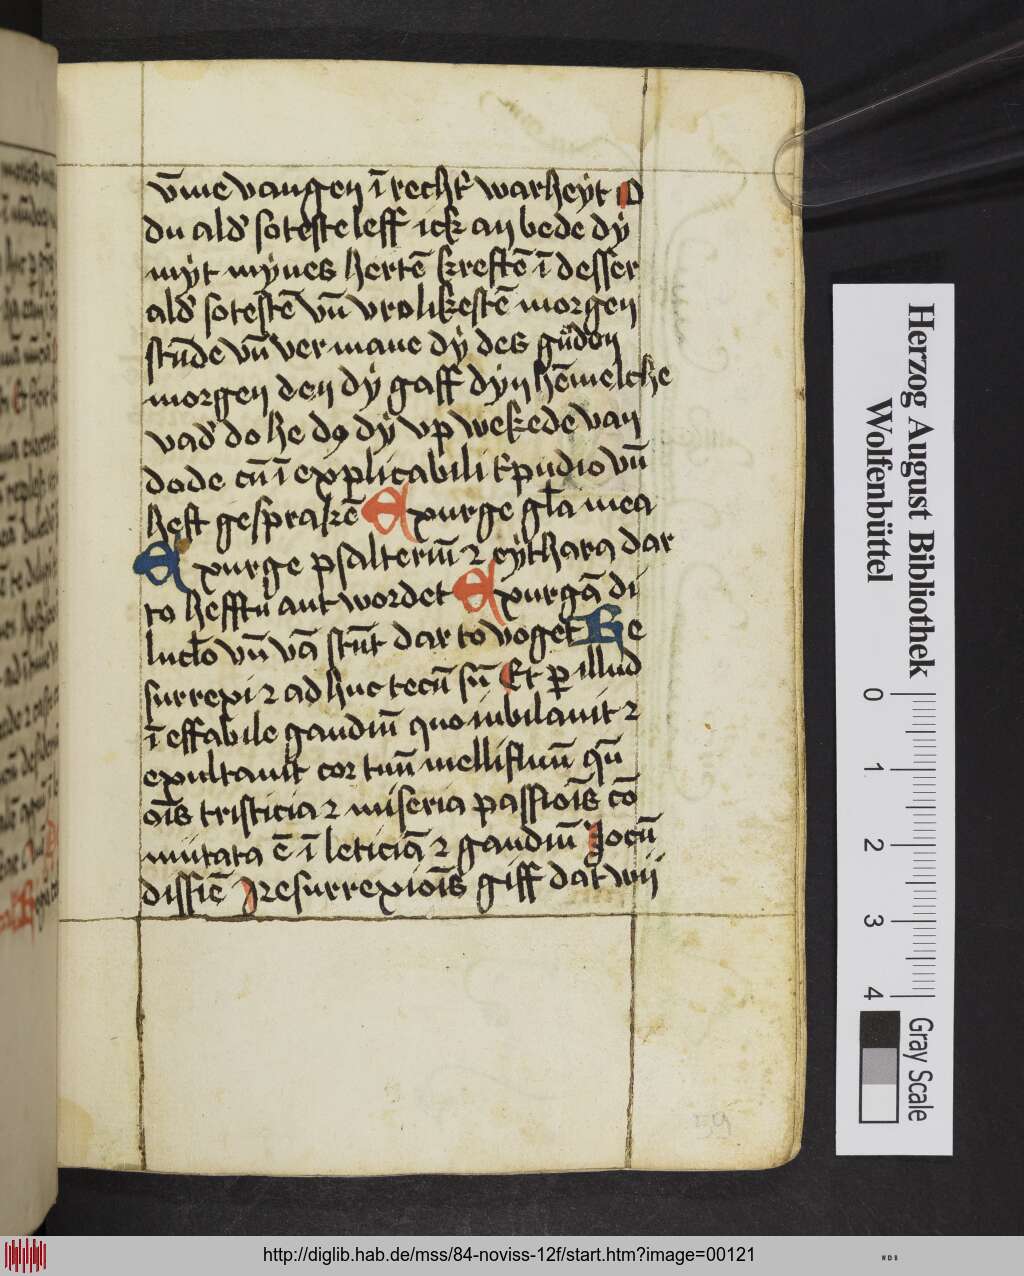 v̄me vangen ī recht' warheyt O
du ald' soteste leff ick an bede dÿ
mÿt mÿnes hertē kreftē ī desser
ald' sotestē vn̄ vrolikestē morgen
stūde vn̄ vermane dÿ des gůden
morgen den dÿ gaff dÿn hēmelsche
vad' do he dÿ vp wekede van
dode cū ī explicabili t'pudio vn̄
heft gesprakē Exurge gl̄a mea
Exurge psalteriū ⁊ cythara dar
to hefftu antwordet Exurgā di
lucl̄o vn̄ vā stūt dar to voget Re
surrexi ⁊ ad huc tecū sū Et ꝑ illud
ī effabile gaudiū quo iubilauit ⁊
exultauit cor tuū mellifluū qn̄
oīs tristicia ⁊ miseria passiōīs cō
mutata ē ī leticiā ⁊ gaudiū Jocū
dissiē resurrexiōīs giff dat wij
Herzog August Bibliothek
Wolfenbüttel
0 1 2 3 4
Gray Scale
http://diglib.hab.de/mss/84-noviss-12f/start.htm?image=00121